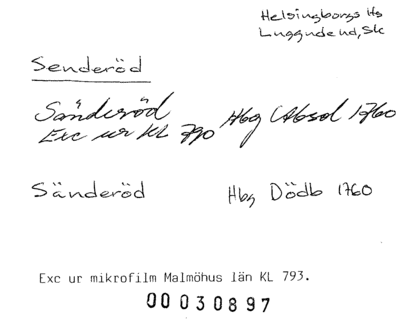 Helsingborgs Hs
Luggude hd, Sk
Senderöd
Sänderöd Hbg Absol 1760
Exc ur KL 790
Sänderöd Hbg Dödb 1760
Exc ur mikrofilm Malmöhus län KL 793.
00030897